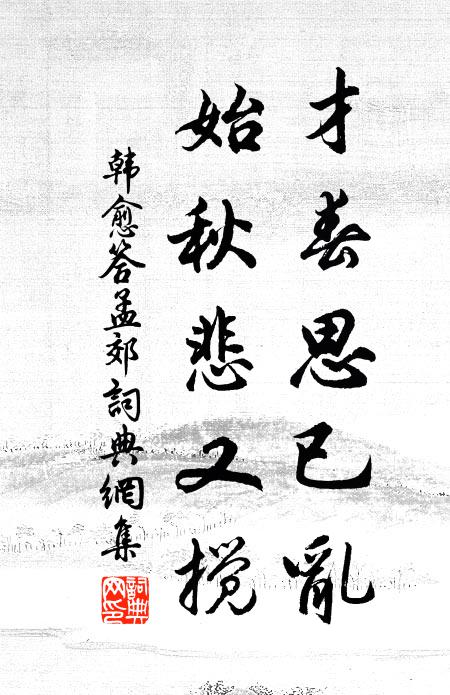 才春思已亂
始秋悲又搅
韩愈答孟郊詞典網集
詞典网印